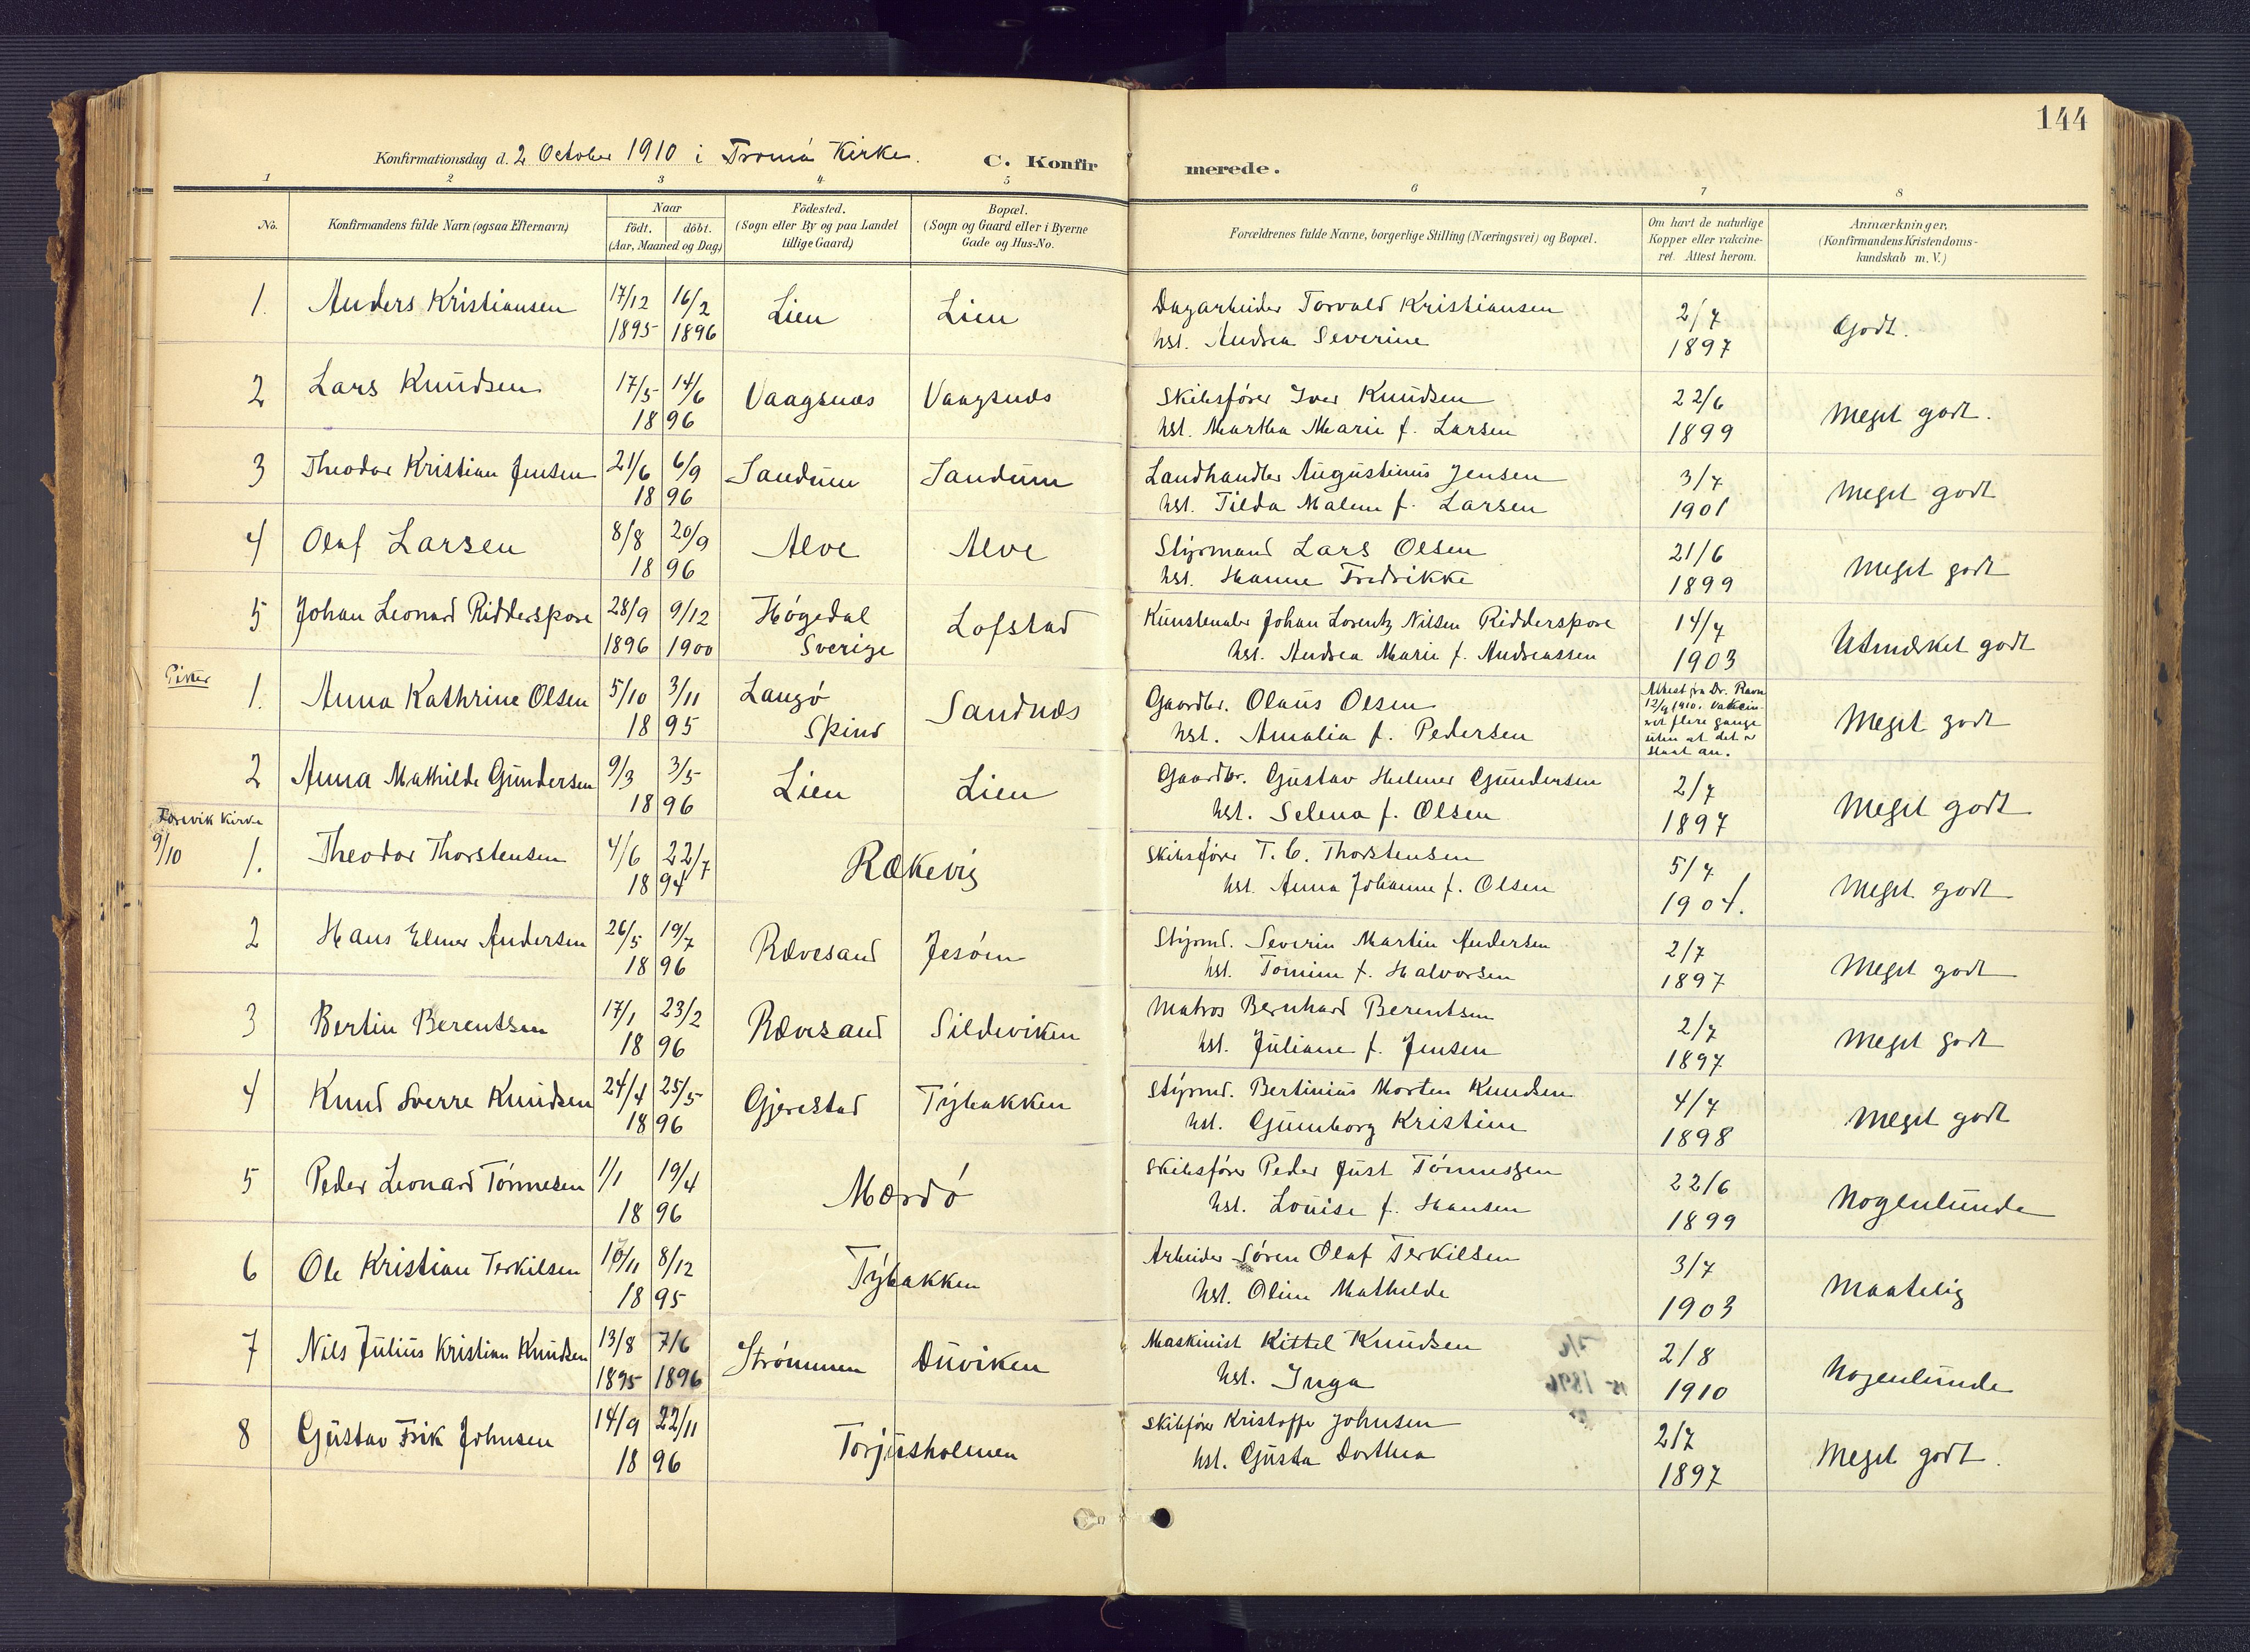 144
Konfirmationsdag d. 2 October 1910 i Tromö Kirke. C. Konfirmerede.
1 2 3 4 5 6 7 8
No. Konfirmandens fulde Navn (ogsaa Efternavn) Naar födt. döbt. (Aar, Maaned og Dag) Födested. (Sogn eller By og paa Landet tillige Gaard) Bopæl. (Sogn og Gaard eller i Byerne Gade og Hus-No. Forældrenes fulde Navne, borgerlige Stilling (Næringsvei) og Bopæl. Om havt de naturlige Kopper eller vakcineret. Attest herom. Anmærkninger. (Konfirmandens Kristendomskundskab m. V.)
1. Anders Kristiansen 17/12 1895 16/2 1896 Lien Lien Dagarbeider Torvald Kristiansen
hst. Andrea Severine 2/7 1897 Godt.
2 Lars Knudsen 17/5 14/6 1896 Vaagsnæs Vaagsnæs Skibsförer Iver Knudsen
hst. Martha Marie f. Larsen 22/6 1899 Meget godt.
3 Theodor Kristian Jensen 21/6 6/9 1896 Sandum Sandum Landhandler Augustinus Jensen
hst. Tilda Malene f. Larsen 3/7 1901 Meget godt
4 Olaf Larsen 8/8 20/9 1896 Alve Alve Styrmand Lars Olsen
hst. Hanne Fredrikke 21/6 1899 Meget godt
5 Johan Leonard Ridderspore 28/9 1896 9/12 1900 Högedal Sverige Lofstad Kunstmaler Johan Lorentz Nilsen Ridderspore
hst. Andrea Marie f. Andreassen 14/7 1903 Utmærket godt
Piker
1. Anna Kathrine Olsen 5/10 3/11 1895 Langö Spind Sandnæs Gaardbr. Olaus Olsen
hst. Amalia f. Pedersen Attest fra Dr. Ravn 12/9 1910. Vakcineret flere gange uten at det er slaat an. Meget godt
2 Anna Mathilde Gundersen 9/3 3/5 1896 Lien Lien Gaardbr. Gustav Helmer Gundersen
hst. Selena f. Olsen 2/7 1897 Meget godt
Færvik Kirke
9/10
1. Theodor Thorstensen 4/6 22/7 1894 Rækevig Skibsförer T. C. Thorstensen
hst. Anna Johanne f. Olsen 5/7 1904. Meget godt
2 Hans Elmer Andersen 26/5 19/7 1896 Rævesand Jesöen Styrmd. Severin Martin Andersen
hst. Tomine f. Halvorsen 2/7 1897 Meget godt
3 Bertin Berentsen 17/1 23/2 1896 Rævesand Sildeviken Matros Bernhard Berentsen
hst. Juliane f. Jensen 2/7 1897 Meget godt
4 Knud Sverre Knudsen 24/4 25/5 1896 Gjerestad Tybakken Styrmd. Bertinius Morten Knudsen
hst. Gunnborg Kristine 4/7 1898 Meget godt
5 Peder Leonard Tönnesen 1/1 19/4 1896 Mærdö Skibsförer Peder Just Tönnessen
hst. Louise f. Hansen 22/6 1899 Nogenlunde
6 Ole Kristian Terkilsen 10/11 8/12 1895 Tybakken Arbeider Sören Olaf Terkilsen
hst. Oline Mathilde 3/7 1903 Maatelig
7 Nils Julius Kristian Knudsen 13/8 1895 7/6 1896 Strömmen Duviken Maskinist Kittel Knudsen
hst. Inga 2/8 1910 Nogenlunde
8 Gustav Erik Johnsen 14/9 22/11 1896 Torjusholmen Skibsförer Kristoffe Johnsen
hst. Gusta Dorthea 2/7 1897 Meget godt.